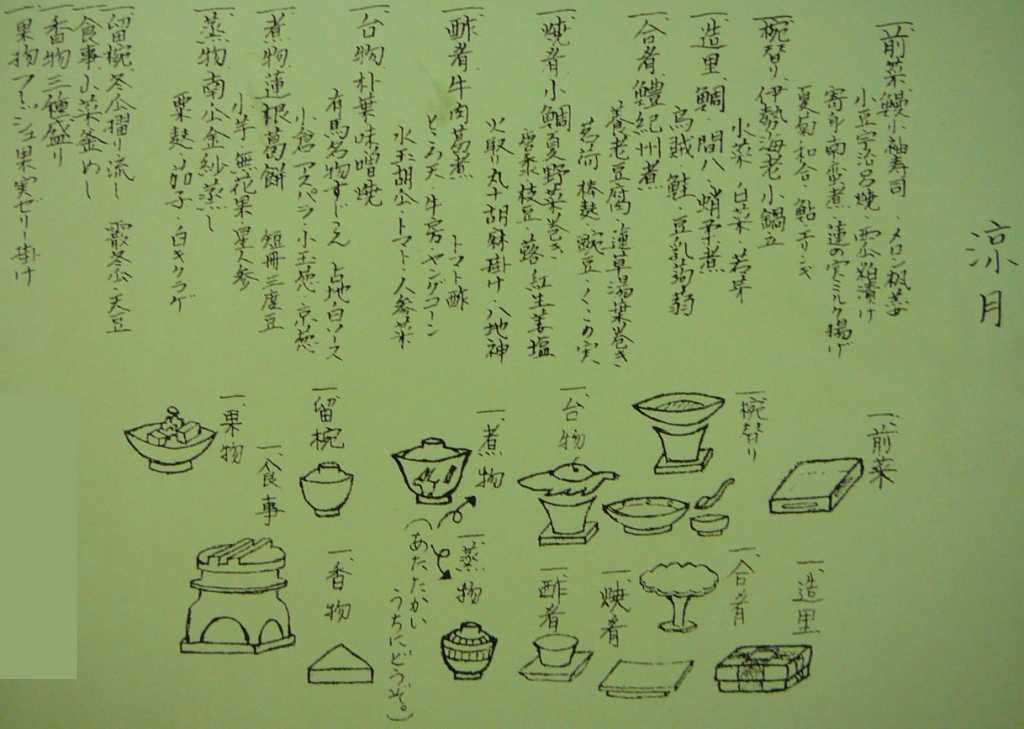 涼月
一、前菜 鰻小袖寿司 ・メロン楓麩
小豆宇治呂焼 ・西瓜粕漬け
寄り南蛮煮・蓮の実ミルク揚げ
夏菊和合・鮎・エリンギ
一、椀替り 伊勢海老小鍋立
水菜・白菜・若芽
一、造里 鯛・間八・蛸子煮
烏賊・鮭・豆乳蒟蒻
一、合肴 鱧紀州煮
養老豆腐・蓮草湯葉巻き
椿麩・豌豆・くこの実
一、焼肴 小鯛夏野菜巻き
枝豆・蕗・紅生姜塩
火取り丸十胡麻掛け・八地神
一、酢肴 牛肉葛煮 トマト酢
ところ天・牛房・ヤングコーン
水玉胡瓜・トマト・人参菜
一、台物 朴葉味噌焼
有馬名物すじこん 占地白ソース
小倉アスパラ・小玉葱・京葱
一、煮物 蓮根葛餅 短冊三度豆
小芋・無花果・星人参
一、蒸物 南瓜金紗蒸し
粟麩・茄子・白キクラゲ
一、留椀 冬瓜擂り流し 霰冬瓜・天豆
一、食事 小菜釜めし
一、香物 三種盛り
一、果物 フレッシュ果実ゼリー掛け
一、前菜
一、椀替り
一、台物
一、煮物
一、留椀
一、果物
一、食事
一、造里
一、合肴
一、焼肴
一、酢肴
一、蒸物
(あたたかい
うちにどうぞ。)
一、香物